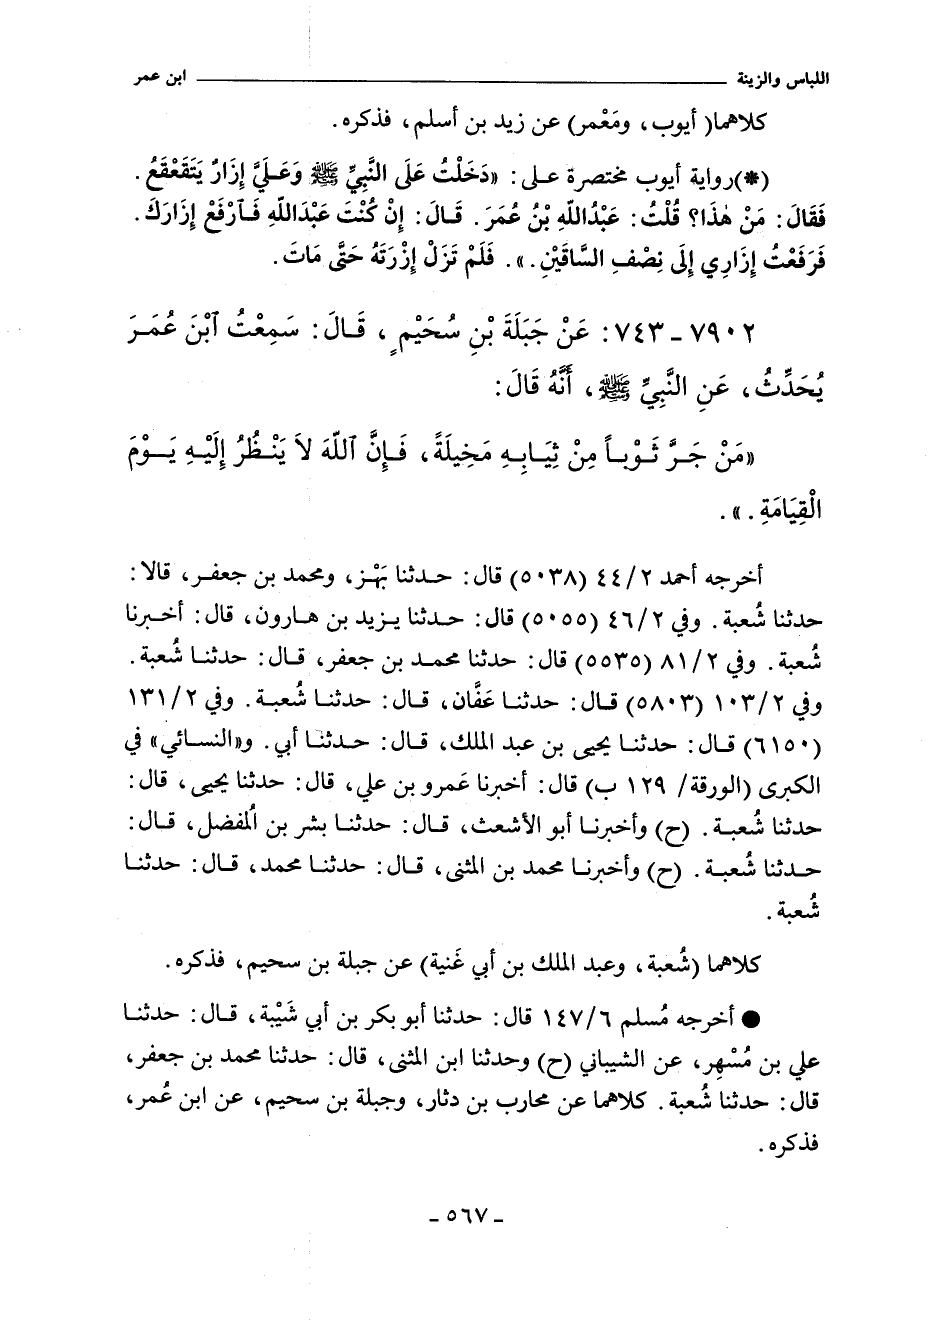 اللباس والزينة ابن عمر
كلاهما( أيوب، ومَعْمر) عن زيد بن أسلم، فذكره.
(*)رواية أيوب مختصرة على: «دَخَلْتُ عَلَى النَّبِيِّ ﷺ وَعَلَيَّ إِزَارٌ يَتَقَعْقَعُ.
فَقَالَ: مَنْ هٰذَا؟ قُلْتُ: عَبْدُاللّهِ بْنُ عُمَرَ. قَالَ: إِنْ كُنْتَ عَبْدَاللّهِ فَآرْفَعْ إِزَارَكَ.
فَرَفَعْتُ إِزَارِي إِلَى نِصْفِ السَّاقَيْنِ.». فَلَمْ تَزَلْ إِزْرَتَهُ حَتَّى مَاتَ.
٧٩٠٢ - ٧٤٣: عَنْ جَبَلَةَ بْنِ سُحَيْمٍ، قَالَ: سَمِعْتُ ٱبْنَ عُمَرَ
يُحَدِّثُ، عَنِ النَّبِيِّ ﷺ، أَنَّهُ قَالَ:
«مَنْ جَرَّ ثَوْباً مِنْ ثِيَابِهِ مَخِيلَةً، فَإِنَّ ٱللّهَ لاَ يَنْظُرُ إِلَيْهِ يَوْمَ
الْقِيَامَةِ.».
أخرجه أحمد ٤٤/٢ (٥٠٣٨) قال: حدثنا بَهْز، ومحمد بن جعفر، قالا:
حدثنا شُعبة. وفي ٤٦/٢ (٥٠٥٥) قال: حدثنا يزيد بن هارون، قال: أخبرنا
شُعبة. وفي ٨١/٢ (٥٥٣٥) قال: حدثنا محمد بن جعفر، قال: حدثنا شُعبة.
وفي ١٠٣/٢ (٥٨٠٣) قال: حدثنا عَفَّان، قال: حدثنا شُعبة. وفي ١٣١/٢
(٦١٥٠) قال: حدثنا يحيى بن عبد الملك، قال: حدثنا أبي. و«النسائي» في
الكبرى (الورقة/ ١٢٩ ب) قال: أخبرنا عَمرو بن علي، قال: حدثنا يحيى، قال:
حدثنا شُعبة. (ح) وأخبرنا أبو الأشعث، قال: حدثنا بشر بن المُفضل، قال:
حدثنا شُعبة. (ح) وأخبرنا محمد بن المثنى، قال: حدثنا محمد، قال: حدثنا
شُعبة.
كلاهما (شُعبة، وعبد الملك بن أبي غَنية) عن جبلة بن سحيم، فذكره.
● أخرجه مُسلم ١٤٧/٦ قال: حدثنا أبو بكر بن أبي شَيْبة، قال: حدثنا
علي بن مُسْهِر، عن الشيباني (ح) وحدثنا ابن المثنى، قال: حدثنا محمد بن جعفر،
قال: حدثنا شُعبة. كلاهما عن محارب بن دثار، وجبلة بن سحيم، عن ابن عُمر،
فذكره.
- ٥٦٧ -